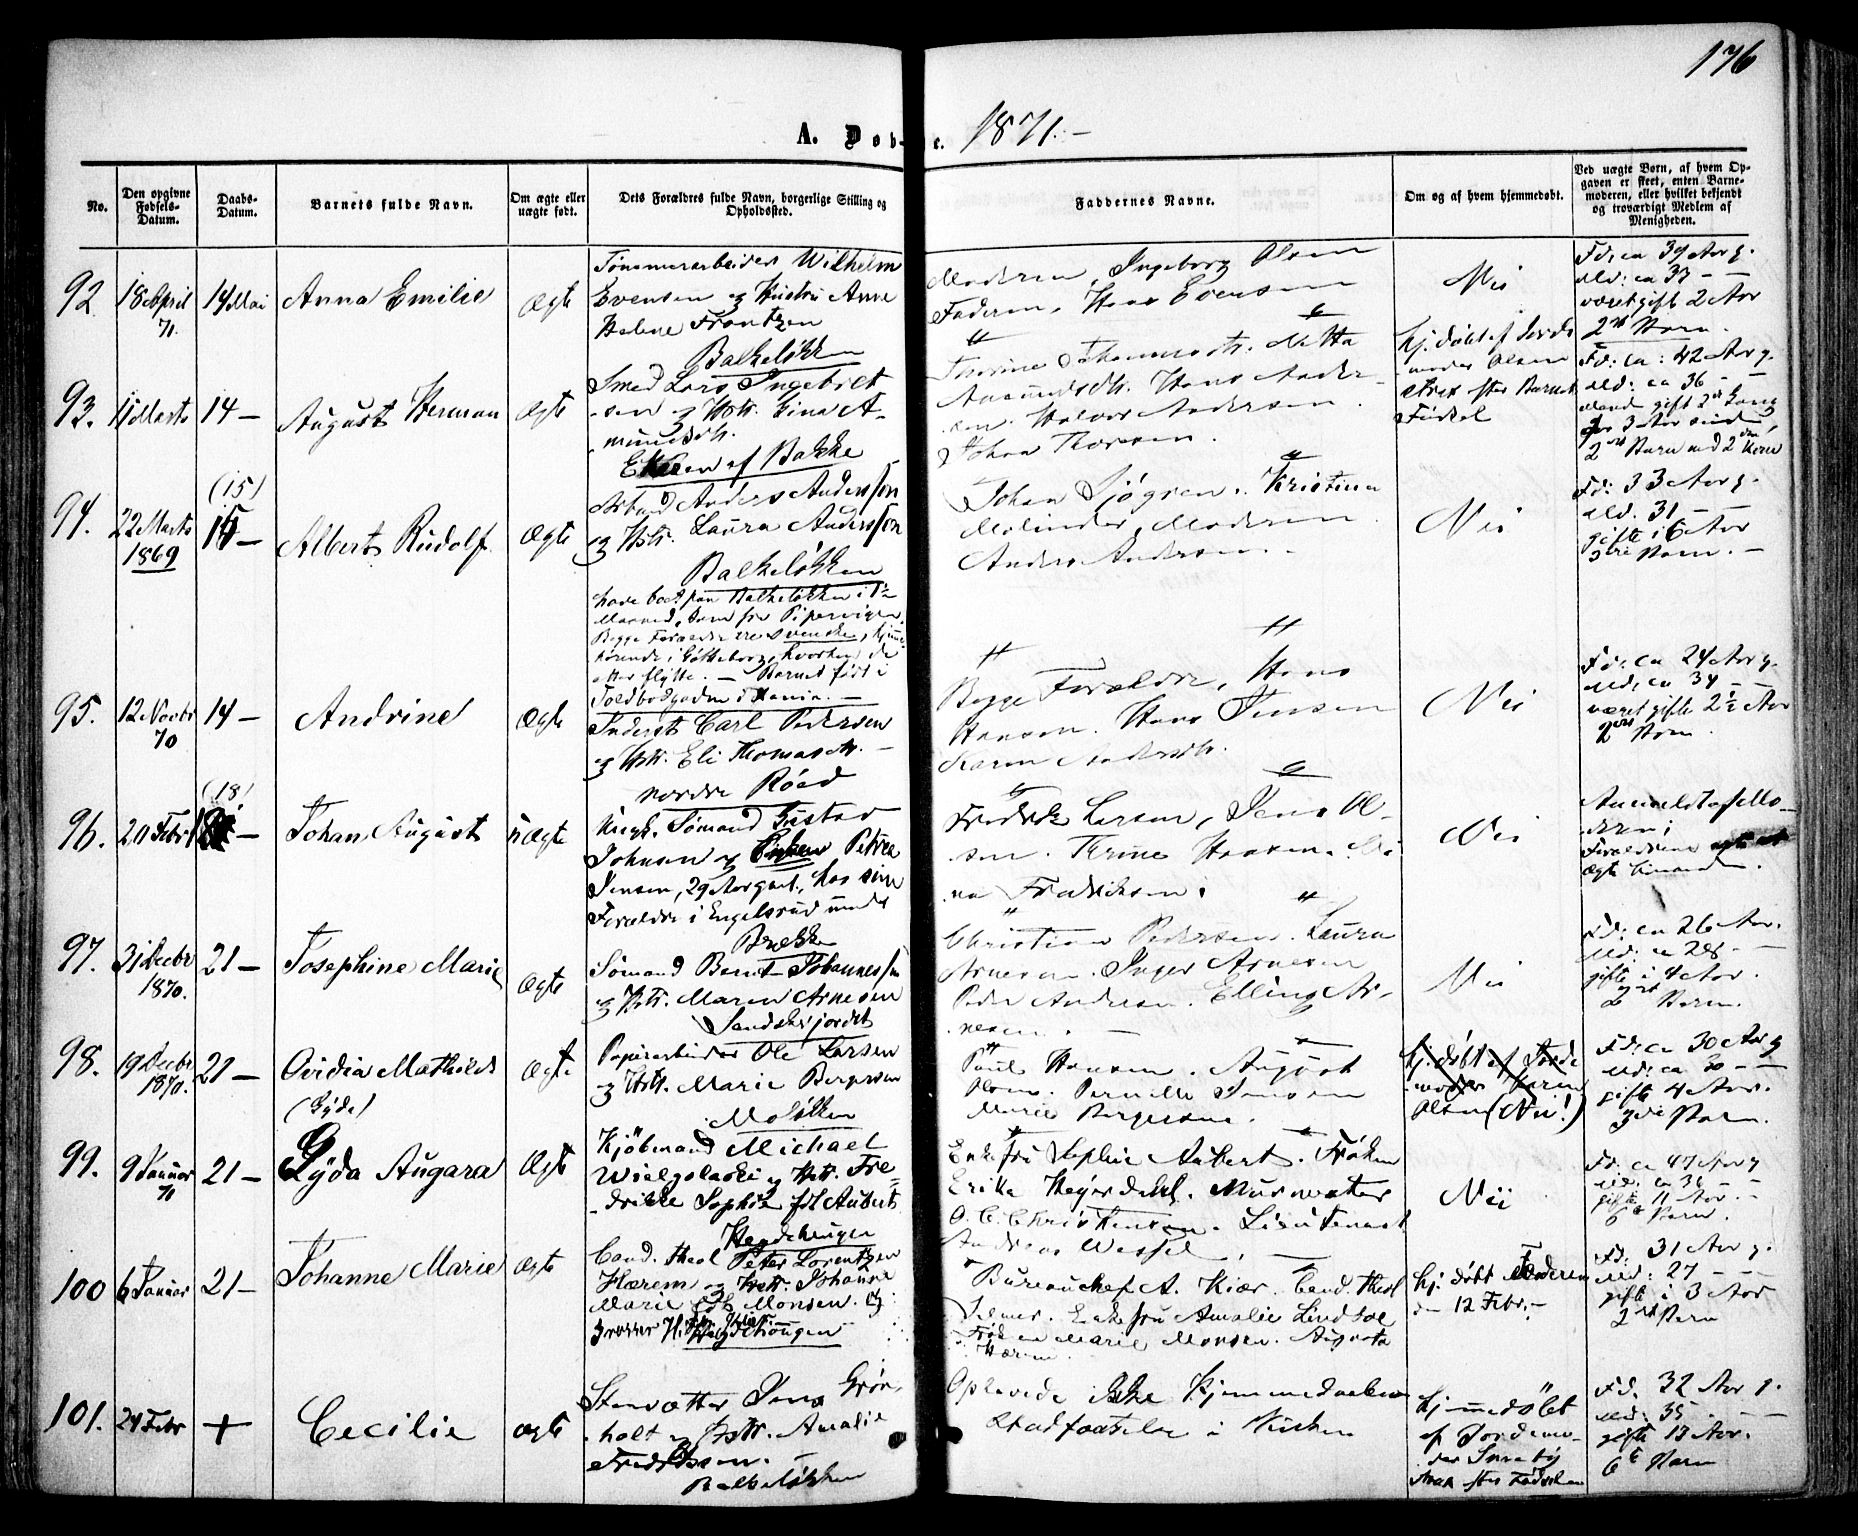 176
A. Døb- e. 1871.-
No.
Den opgivne Fødsels-Datum.
Daabs-Datum.
Barnets fulde Navn.
Om ægte eller uægte født.
Dets Forældres fulde Navn, borgerlige Stilling og Opholdssted.
Faddernes Navne.
Om og af hvem hjemmedøbt.
Ved uægte Børn, af hvem Opgaven er skeet, enten Barnemoderen, eller hvilket bekjendt og troværdigt Medlem af Menigheden.
92. 18 April 71. 14 Mai Anna Emilie Ægte
Tømmerarbeider Wilhelm
Evensen og Hustru Anne
Helene Frantzen
Balkeløkken
Moderen, Ingeborg Olsen
Faderen, Hans Evensen
Nei
Fd: ca 39 Aar g.
Md: ca 33 - -
været gift 2 Aar
2det Barn.
93. 11 Marts 14 - August Herman Ægte
Smed Lars Ingebret-
sen og Hstr. Gina A-
mundsdtr.
af Bakke
Thorine Thomasdtr. Mette
Amundsdtr. Hans Ander-
sen. Halvor Andersen.
Johan Thorsen.
hj. døbt af Jorde-
moder Olsen
strax efter Barnets
Fødsel
Fd: ca: 42 Aar g.
Md: ca 36 - -
Mand gift 2den Gang
for 3 Aar siden,
2det Barn med 2den Kone
94. 22 Marts 1869 (15) 15 - Albert Rudolf Ægte
Arb. Anders Andersson
og Hstr. Laura Andersson
Balkeløkken
have boet paa Balkeløkken i
Maaned, kom fra Pipervigen.
Begge Forældre ere svenske, hjemme-
hørende i Gøtteborg, hvorhen de
atter flytte. - Barnet født i
Toldbodgaden i Xania. -
Johan Sjøgren. Kristina
Molinder, Moderen.
Anders Andersen. -
Nei
Fd: 33 Aar g.
Md. 31 - -
gifte i 6 Aar
3die Barn. -
95. 12 Novbr 70 14 - Andrine Ægte
Inderst Carl Pedersen
og Hstr. Eli Thomasdtr. -
nordre Röed
Begge Forældre, Hans
Hansen. Hans Jensen
Karen Andersdtr.
Nei
Fd: ca 24 Aar g.
Md: ca 34 - -
været gifte 2½ Aar
2det Barn.
96. 20 Febr (18) Johan August uÆgte
Ungk. Sømand Gustav
Johnsen og Petrea
Jensen, 29 Aar gml., hos sine
Forældre i Engelsrud under
Brække
Fredrik Larsen, Jens Ol-
sen. Terine Hansen. Mi-
na Fredriksen.
Nei
Anmeldt af Mo-
deren;
Forældrene
Ægte
97. 31 Decbr 1870. 21 - Josephine Marie Ægte
Sømand Bernt Johannessen
og Hstr. Maren Arnesen
Sandakerjordet
Christian Pedersen. Laura
Arnesen. Inger Arnesen
Peder Andersen. Elling Ar-
nesen.
Nei
Fd: ca 26 Aar.
Md: ca 28 -
gifte i 4 Aar.
2det Barn.
98. 19 Decbr 1870. 21 - Ovidia Mathilde Ægte
Papirarbeider Ole Larsen
og Hstr. Marie Bergersen
Moløkken
Paul Hansen. August
Olsen. Pernille Jensen
Marie Bergersen.
hj. døbt af Jorde-
moder Karen
Olsen (Nei!)
Fd: ca 30 Aar g
Md: ca 30 - -
gifte 4 Aar.
3die Barn.
99. 9 Januar 71 21 - (Gyda) Gyda Augara Ægte
Kjøbmand Michael
Wielgolaski og Hstr. Fre-
drikke Sophie f. Aubert
Hegdehaugen
Enkefru Sophie Aubert. Frøken
Erika Heyerdahl. Murmester
O. C. Christensen. Lieutenant
Andreas Wessel.
Nei
Fd. ca 47 Aar g
Md. ca 36 - -
gifte 11 Aar. -
6te Barn.
100 6 Januar 21 - Johanne Marie Ægte
Cand. theol Peter Lorentzen
Hærem og Hstr. Johanne
Marie f. Monsen.
Hegdehaugen
Bureauchef A. Kiær. Cand. theol
Selmer. Enkefru Amalie Lindboe
Frøken Marie Monsen. Augusta
Hærem.
hj. døbt Faderen
den 12 Febr. -
Fd. 31 Aar g.
Md: 27 - - -
gifte i 3 Aar
2det Barn
101. 24 Febr + Cecilie ægte
Skrædder Jens Grøn-
holt og Hstr. Amalie
Fredriksen. -
Balkeløkken
Oplevede ikke Hjemmedaabens
Stadfæstelse i Kirken
hjemmedøbt
af Jordemo-
der Snneby
strax efter Fødselen
Fd. 32 Aar g.
Md: 35 - -
gifte 13 Aar.
6te Barn